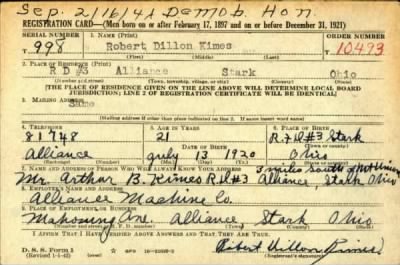 Sep. 2/16/41 Demob. Hon.
REGISTRATION CARD—(Men born on or after February 17, 1897 and on or before December 31, 1921)
SERIAL NUMBER 1. NAME (Print) ORDER NUMBER
998 Robert Dillon Kimes 10493
2. PLACE OF RESIDENCE (Print)
R D #3 Alliance Stark Ohio
(Number and street) (Town, township, village, or city) (County) (State)
[THE PLACE OF RESIDENCE GIVEN ON THE LINE ABOVE WILL DETERMINE LOCAL BOARD
JURISDICTION; LINE 2 OF REGISTRATION CERTIFICATE WILL BE IDENTICAL]
3. MAILING ADDRESS
Same
[Mailing address if other than place indicated on line 2. If same insert word same]
4. TELEPHONE 5. AGE IN YEARS 6. PLACE OF BIRTH
81748 21 R.F.D #3 Stark
DATE OF BIRTH
Alliance July 13 1920 Ohio
7. NAME AND ADDRESS OF PERSON WHO WILL ALWAYS KNOW YOUR ADDRESS 3 miles South of Mt Union
Mr. Arthur B. Kimes R.D #3 Alliance, Stark Ohio
8. EMPLOYER'S NAME AND ADDRESS
Alliance Machine Co.
9. PLACE OF EMPLOYMENT OR BUSINESS
Mahoning Ave. Alliance Stark Ohio
I AFFIRM THAT I HAVE VERIFIED ABOVE ANSWERS AND THAT THEY ARE TRUE.
D. S. S. Form 1 Robert Dillon Kimes
(Revised 1-1-42) (Registrant's signature)